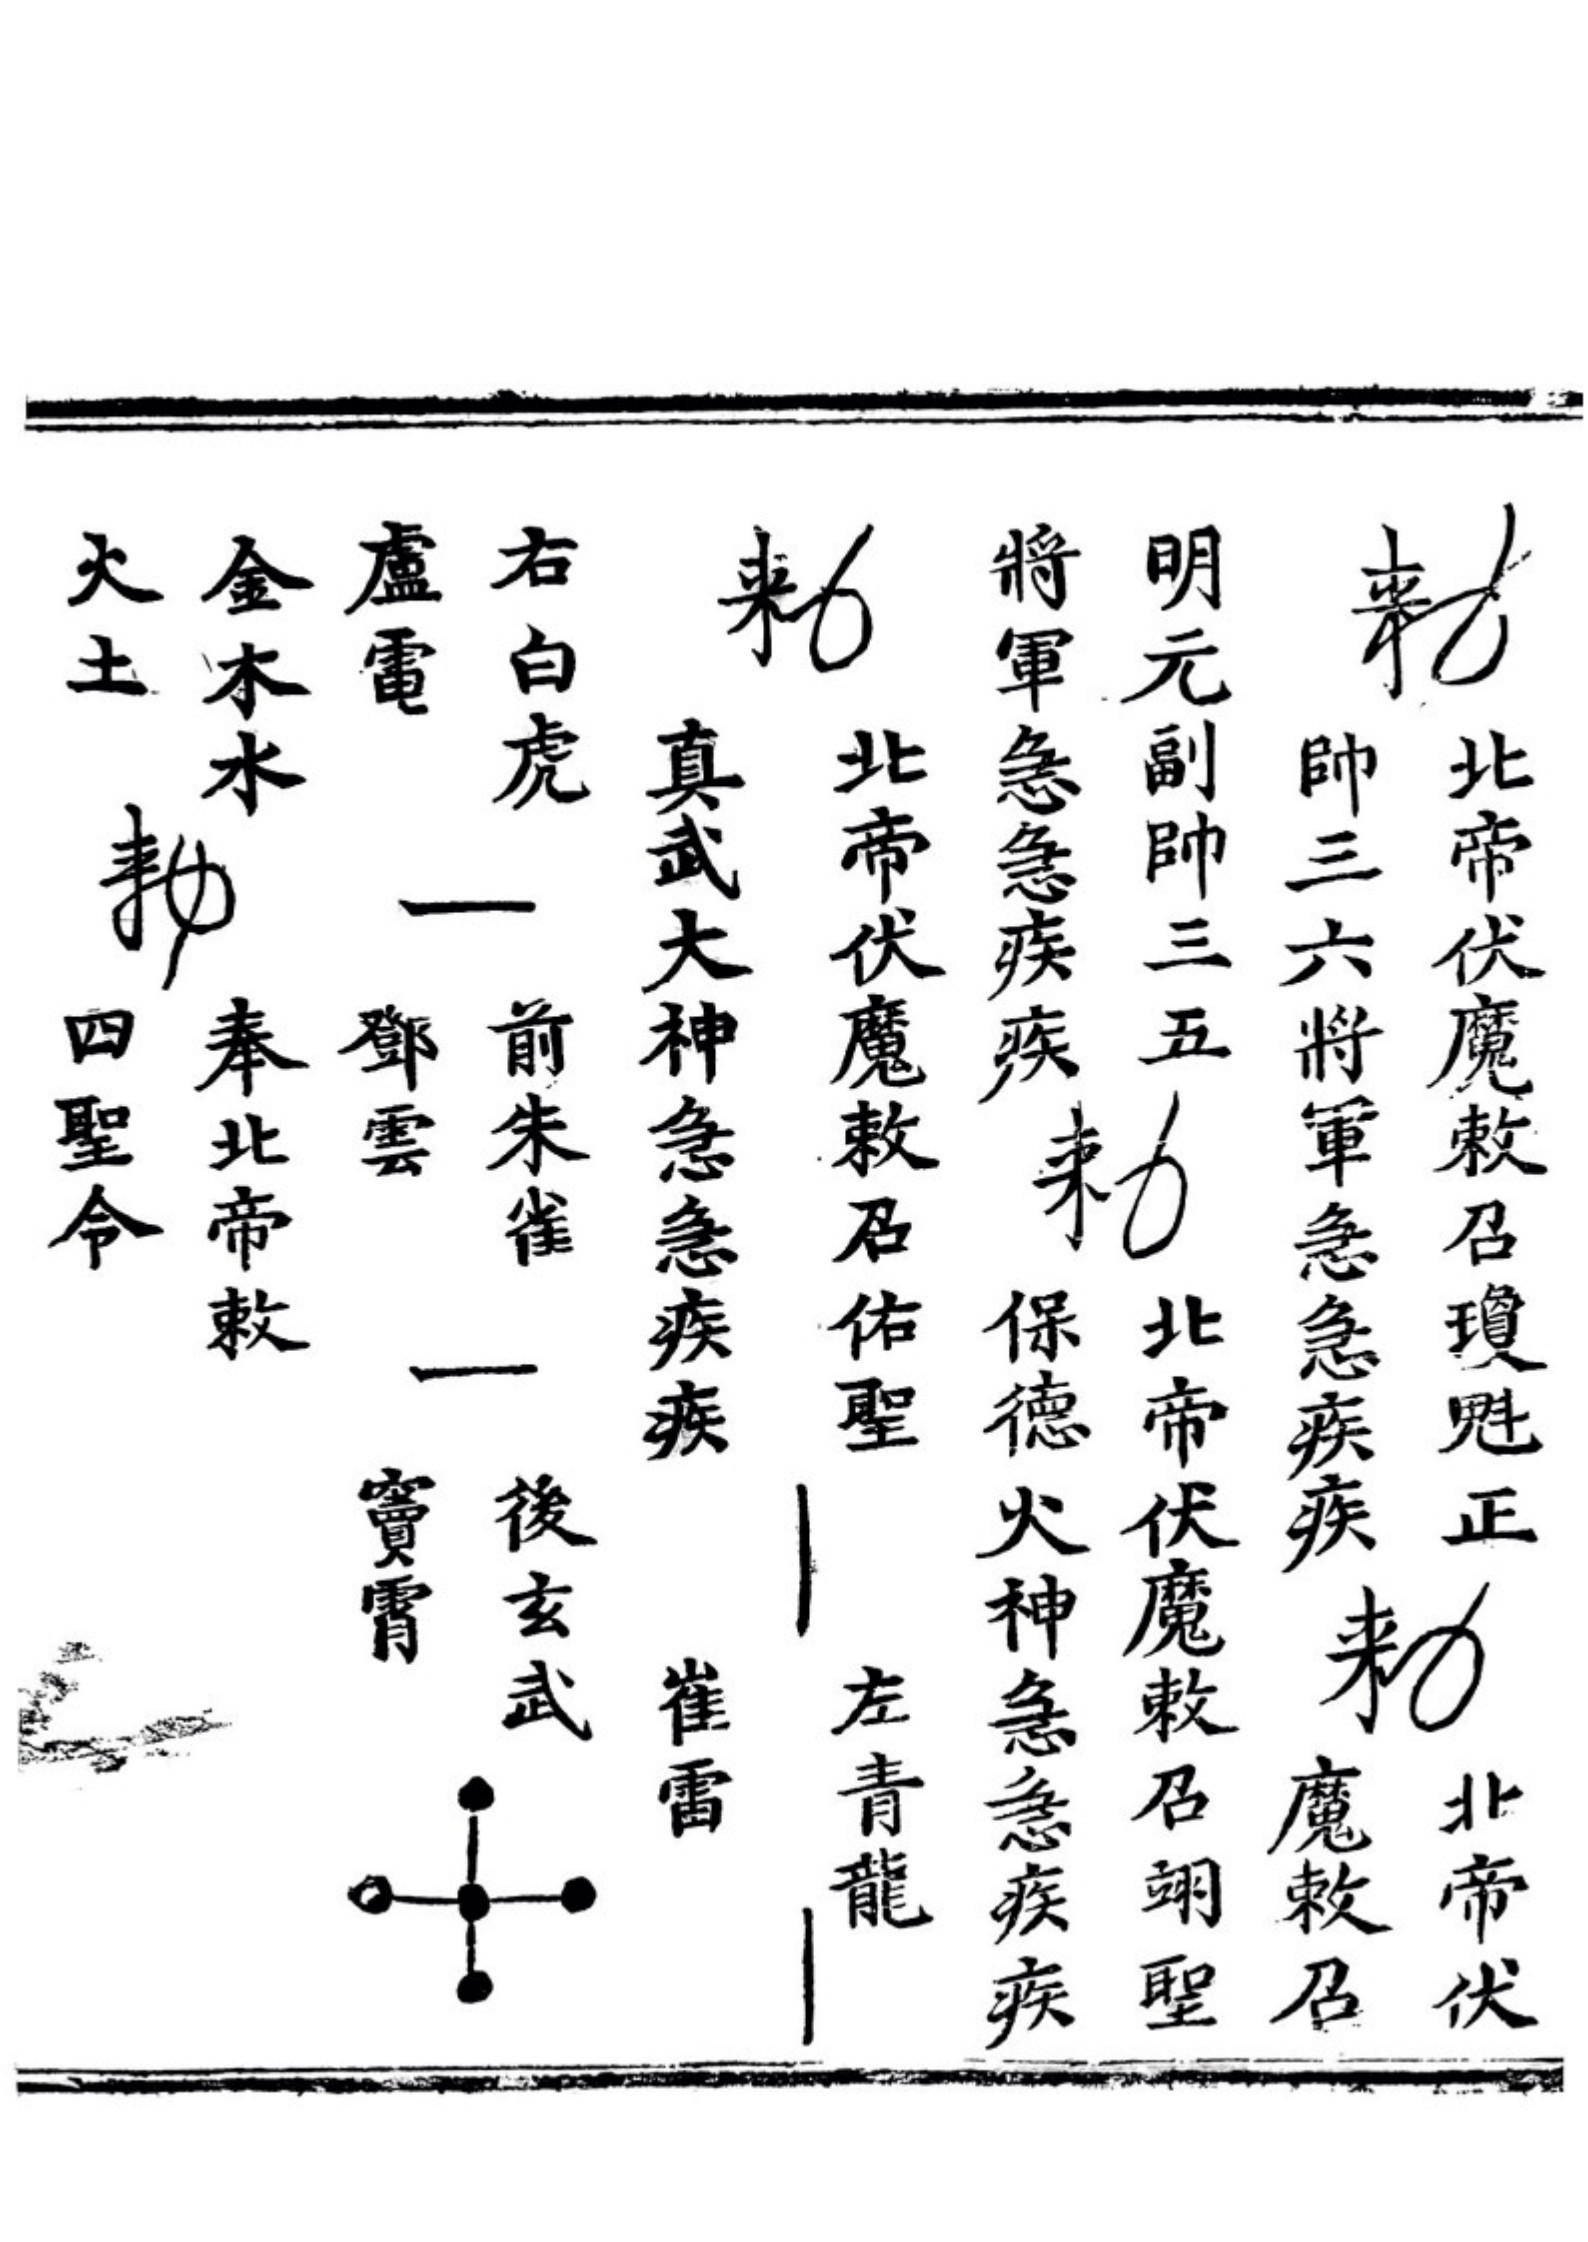 勑
北帝伏魔敕召瓊魁正
帥三六將軍急急疾疾
勑
北帝伏
魔敕召
明元副帥三五
將軍急急疾疾
勑
北帝伏魔敕召翊聖
保德火神急急疾疾
勑
北帝伏魔敕召佑聖
真武大神急急疾疾
左青龍
崔雷
右白虎
盧電
前朱雀
鄧雲
後玄武
竇霄
金木水
火土
勑
奉北帝敕
四聖令